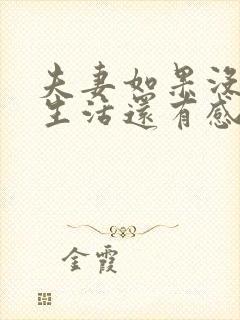 夫妻如果沒
生活還有感
金霞